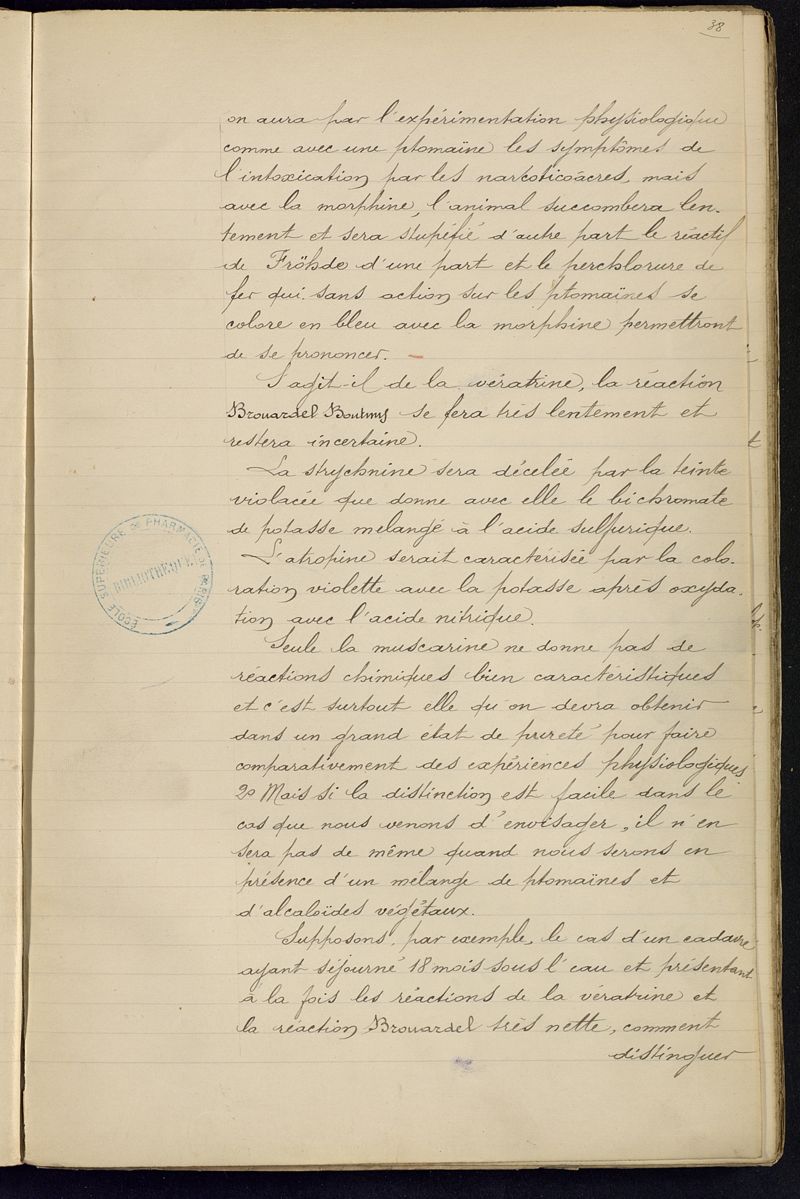 38
on aura par l'expérimentation physiologique
comme avec une ptomaïne les symptômes de
l'intoxication par les narcoticoâcres, mais
avec la morphine, l'animal succombera len-
tement et sera stupéfié d'autre part le réactif
de Fröhde d'une part et le perchlorure de
fer qui sans action sur les ptomaïnes se
colore en bleu avec la morphine permettront
de se prononcer. –
S'agit-il de la vératrine, la réaction
Brouardel Boutmy se fera très lentement et
restera incertaine.
La strychnine sera décelée par la teinte
violacée que donne avec elle le bichromate
de potasse mélangé à l'acide sulfurique.
L'atropine serait caractérisée par la colo-
ration violette avec la potasse après oxyda-
tion avec l'acide nitrique.
Seule la muscarine ne donne pas de
réactions chimiques bien caractéristiques
et c'est surtout elle qu'on devra obtenir
dans un grand état de pureté pour faire
comparativement des expériences physiologiques
2º Mais si la distinction est facile dans le
cas que nous venons d'envisager, il n'en
sera pas de même quand nous serons en
présence d'un mélange de ptomaïnes et
d'alcaloïdes végétaux.
Supposons, par exemple, le cas d'un cadavre
ayant séjourné 18 mois sous l'eau et présentant
à la fois les réactions de la vératrine et
la réaction Brouardel très nette, comment
distinguer
ÉCOLE SUPÉRIEURE DE PHARMACIE DE PARIS
BIBLIOTHÈQUE